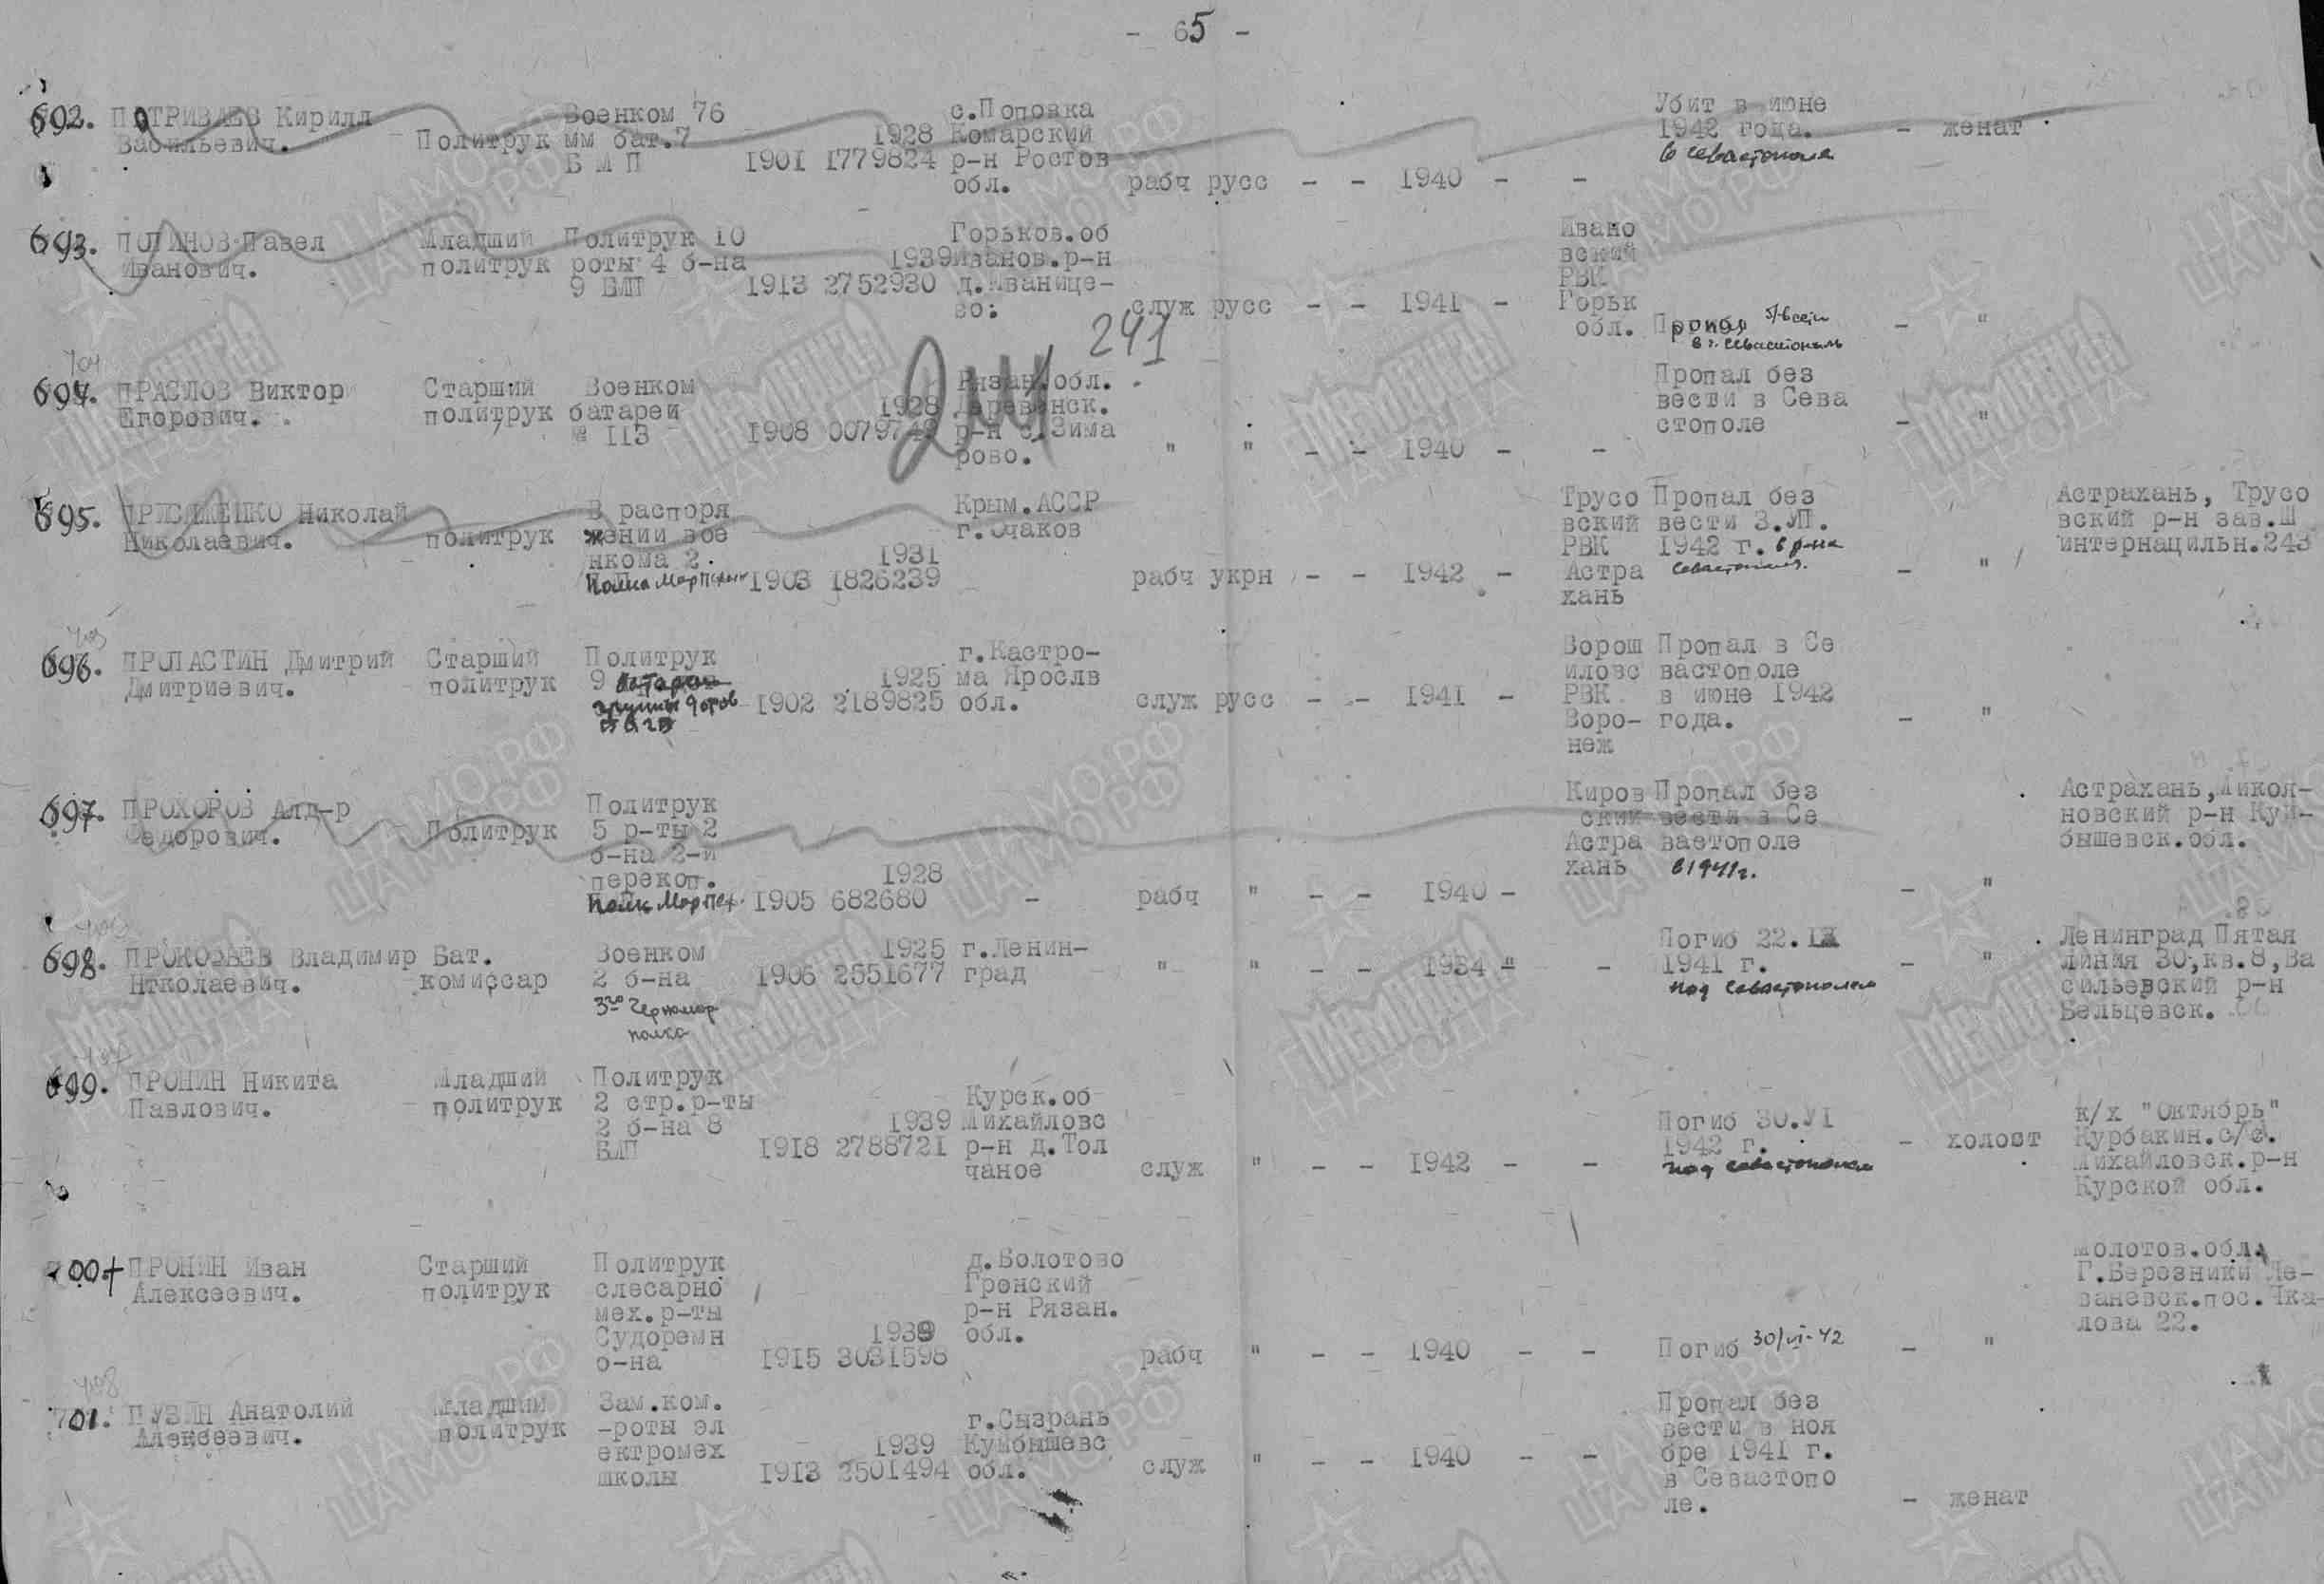 - 65 -
692. ПОТРИВАЕВ Кирилл Васильевич.
Политрук
Военком 76
мм бат.7
Б М П
1901
1928
1779824
с.Поповка
Комарский
р-н Ростов
обл.
рабч русс - - 1940 - -
Убит в июне
1942 года.
в Севастополе
- женат
693. Павел
Иванович.
Младший
политрук
Политрук 10
роты 4 б-на
9 БМП
1913
1939
2752930
Горьков.об
Иванов.р-н
д.Иванице-
во:
служ русс - - 1941 -
Ивано
вский
РВК
Горьк
обл.
Пропал б/вести
в г. Севастополь
- "
241
704
694. ПРАСЛОВ Виктор
Егорович.
Старший
политрук
Военком
батареи
№ 113
1908
1928
Рязан.обл.
р-н с.Зима
рово.
" " - - 1940 - -
Пропал без
вести в Сева
стополе
- "
695. Николай
Николаевич.
политрук
В распоря
жении вое
нкома 2.
полка Морпехоты
1903
1931
1826239
Крым.АССР
г.Очаков
рабч укрн - - 1942 -
Трусо
вский
РВК
Астра
хань
Пропал без
вести 3.VII.
1942 г. в р-не
Севастополя.
- "
Астрахань, Трусо
вский р-н зав.Ш
интернацильн.243
696. ПРОЛАСТИН Дмитрий
Дмитриевич.
Старший
политрук
Политрук
9 батареи
группы дотов
1902
1925
2189825
г.Кастро-
ма Ярослв
обл.
служ русс - - 1941 -
Ворош
иловс
РВК
Воро-
неж
Пропал в Се
вастополе
в июне 1942
года.
- "
697. ПРОХОРОВ Алд-р
Федорович.
Политрук
Политрук
5 р-ты 2
б-на 2-й
перекоп.
полк Морпех.
1905
1928
682680
-
рабч " - - 1940 -
Киров
ский
Астра
хань
Пропал без
вести в Се
вастополе
в 1941г.
- "
Астрахань,Никол-
новский р-н Куй-
бышевск.обл.
698. ПРОКОФЬЕВ Владимир
Нтколаевич.
Бат.
комиссар
Военком
2 б-на
3го Черномор
полка
1906
1925
2551677
г.Ленин-
град
" " - - 1934 - -
Погиб 22.IX
1941 г.
под Севастополем
- "
Ленинград Пятая
линия 30,кв.8,Ва
сильевский р-н
Бельцевск.
699. ПРОНИН Никита
Павлович.
Младший
политрук
Политрук
2 стр.р-ты
2 б-на 8
БМП
1918
1939
2788721
Курск.об
Михайловс
р-н д.Тол
чаное
служ " - - 1942 - -
Погиб 30.VI
1942 г.
под Севастополем
- холост
к/х "Октябрь"
Курбакин.с/с.
Михайловск.р-н
Курской обл.
700. ПРОНИН Иван
Алексеевич.
Старший
политрук
Политрук
слесарно
мех.р-ты
Судоремн
о-на
1915
1939
3031598
д.Болотово
Гронский
р-н Рязан.
обл.
рабч " - - 1940 - -
Погиб 30/VI-42
- "
молотов.обл.
Г.Березники Ле-
ваневск.пос.Чка-
лова 22.
708
701. ПУЗИН Анатолий
Алексеевич.
Младший
политрук
Зам.ком.
-роты эл
ектромех
школы
1913
1939
2501494
г.Сызрань
Куйбышевс
обл.
служ " - - 1940 - -
Пропал без
вести в ноя
бре 1941 г.
в Севастопо
ле.
- женат
ЦАМО.РФ
ПАМЯТЬ НАРОДА